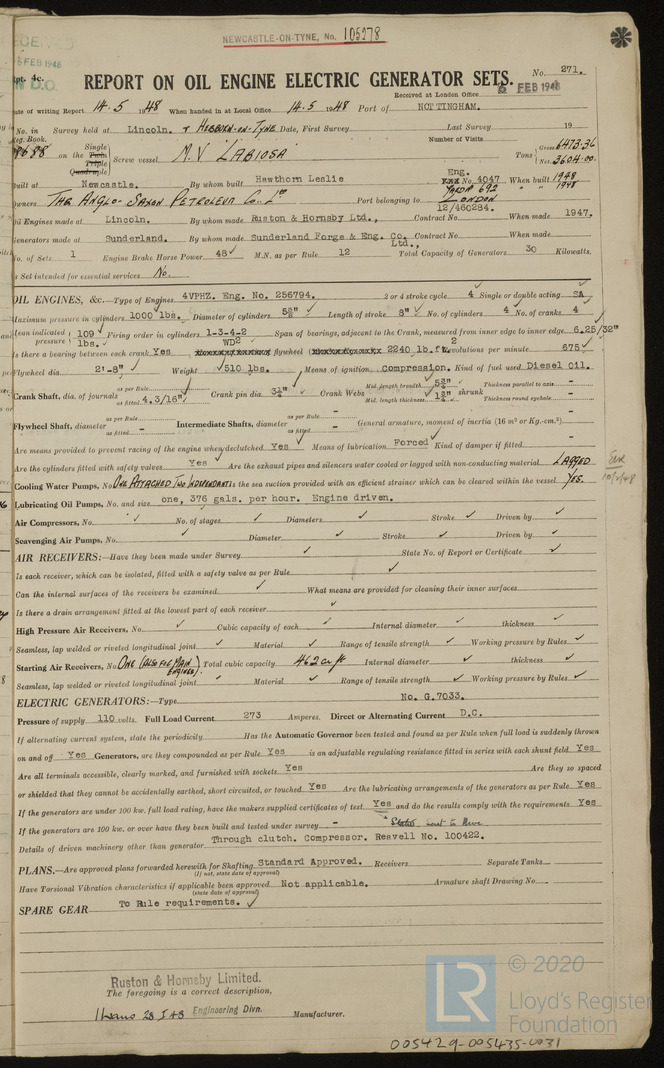 NEWCASTLE-ON-TYNE, No. 105278
6 FEB 1948
Rpt. 4c.
REPORT ON OIL ENGINE ELECTRIC GENERATOR SETS. No. 271.
Received at London Office 6 FEB 1948
Date of writing Report 14.5 1948 When handed in at Local Office 14.5 1948 Port of NOTTINGHAM.
No. in Survey held at Lincoln. & Hebburn-on-Tyne Date, First Survey Last Survey 19
Reg. Book. Number of Visits
on the Single Twin Triple Quadruple Screw vessel M.V LABIOSA Tons Gross 6473.36 Net 3604.00
Built at Newcastle. By whom built Hawthorn Leslie Eng. No. 4047 When built 1948
YARD No 692 " " 1948
Owners THE ANGLO-SAXON PETROLEUM Co. Ld Port belonging to LONDON
12/460284.
Oil Engines made at Lincoln. By whom made Ruston & Hornsby Ltd., Contract No. When made 1947.
Generators made at Sunderland. By whom made Sunderland Forge & Eng. Co. Ltd., Contract No. When made
No. of Sets 1 Engine Brake Horse Power 48 M.N. as per Rule 12 Total Capacity of Generators 30 Kilowatts.
Is Set intended for essential services No.
OIL ENGINES, &c.—Type of Engines 4VPHZ. Eng. No. 256794. 2 or 4 stroke cycle 4 Single or double acting SA
Maximum pressure in cylinders 1000 lbs. Diameter of cylinders 5⅜" Length of stroke 8" No. of cylinders 4 No. of cranks 4
Mean indicated pressure 109 lbs. Firing order in cylinders 1-3-4-2 Span of bearings, adjacent to the Crank, measured from inner edge to inner edge 6.25/32"
Is there a bearing between each crank Yes WD2 flywheel 2240 lb.ft.2 Revolutions per minute 675
Flywheel dia. 2'-8" Weight 510 lbs. Means of ignition compression. Kind of fuel used Diesel Oil.
Crank Shaft, dia. of journals as per Rule as fitted 4.3/16" Crank pin dia. 3¼" Crank Webs Mid. length breadth Mid. length thickness shrunk Thickness parallel to axis - Thickness round eyehole -
Flywheel Shaft, diameter as per Rule as fitted - Intermediate Shafts, diameter as per Rule as fitted - General armature, moment of inertia (16 m² or Kg.-cm.²) -
Are means provided to prevent racing of the engine when declutched Yes Means of lubrication Forced Kind of damper if fitted -
Are the cylinders fitted with safety valves Yes Are the exhaust pipes and silencers water cooled or lagged with non-conducting material LAGGED
Cooling Water Pumps, No. ONE ATTACHED, TWO INDEPENDENT Is the sea suction provided with an efficient strainer which can be cleared within the vessel YES.
Lubricating Oil Pumps, No. and size one, 376 gals. per hour. Engine driven.
Air Compressors, No. No. of stages Diameters Stroke Driven by
Scavenging Air Pumps, No. Diameter Stroke Driven by
AIR RECEIVERS:—Have they been made under Survey State No. of Report or Certificate
Is each receiver, which can be isolated, fitted with a safety valve as per Rule
Can the internal surfaces of the receivers be examined What means are provided for cleaning their inner surfaces
Is there a drain arrangement fitted at the lowest part of each receiver
High Pressure Air Receivers, No. Cubic capacity of each Internal diameter thickness
Seamless, lap welded or riveted longitudinal joint Material Range of tensile strength Working pressure by Rules
Starting Air Receivers, No. ONE (ALSO FOR MAIN ENGINES) Total cubic capacity 462 cu ft Internal diameter thickness
Seamless, lap welded or riveted longitudinal joint Material Range of tensile strength Working pressure by Rules
ELECTRIC GENERATORS:—Type No. G.7033.
Pressure of supply 110 volts. Full Load Current 273 Amperes. Direct or Alternating Current D.C.
If alternating current system, state the periodicity Has the Automatic Governor been tested and found as per Rule when full load is suddenly thrown
on and off Yes Generators, are they compounded as per Rule Yes is an adjustable regulating resistance fitted in series with each shunt field Yes
Are all terminals accessible, clearly marked, and furnished with sockets Yes Are they so spaced
or shielded that they cannot be accidentally earthed, short circuited, or touched Yes Are the lubricating arrangements of the generators as per Rule Yes
If the generators are under 100 kw. full load rating, have the makers supplied certificates of test Yes and do the results comply with the requirements Yes
If the generators are 100 kw. or over have they been built and tested under survey -
Details of driven machinery other than generator Through clutch. Compressor. Reavell No. 100422.
PLANS.—Are approved plans forwarded herewith for Shafting Standard Approved. Receivers Separate Tanks
(If not, state date of approval)
Have Torsional Vibration characteristics if applicable been approved Not applicable. Armature shaft Drawing No.
(state date of approval)
SPARE GEAR To Rule requirements.
Ruston & Hornsby Limited.
The foregoing is a correct description,
Engineering Divn. Manufacturer.
LR
© 2020
Lloyd's Register
Foundation
005429-005435-0031